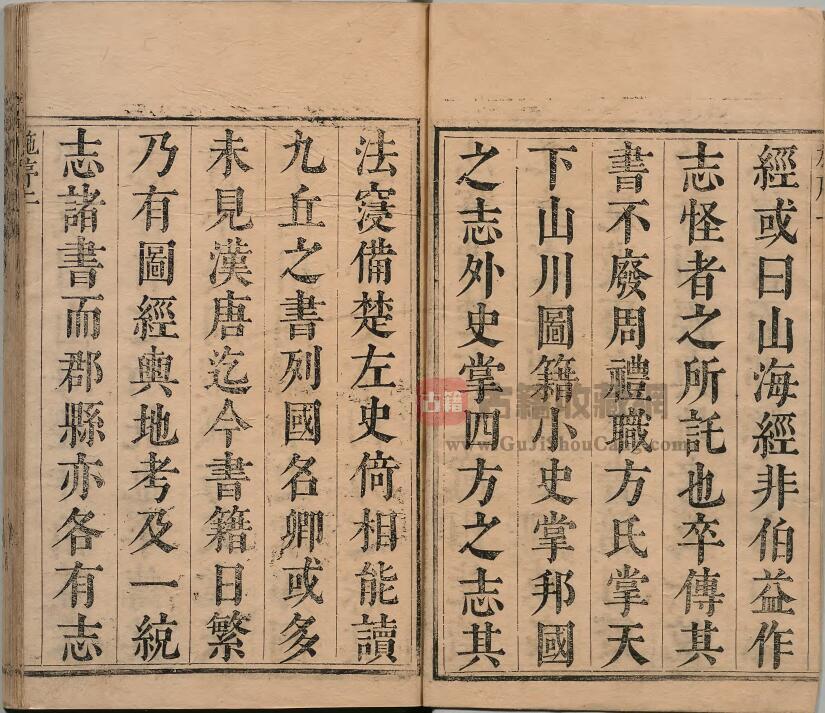 經或曰山海經非伯益作
志怪者之所託也卒傳其
書不廢周禮職方氏掌天
下山川圖籍小史掌邦國
之志外史掌四方之志其
法寖備楚左史倚相能讀
九丘之書列國名卿或多
未見漢唐迄今書籍日繁
乃有圖經輿地考及一統
志諸書而郡縣亦各有志
施序二
古籍
古籍收藏網
www.GuJiShouCang.com